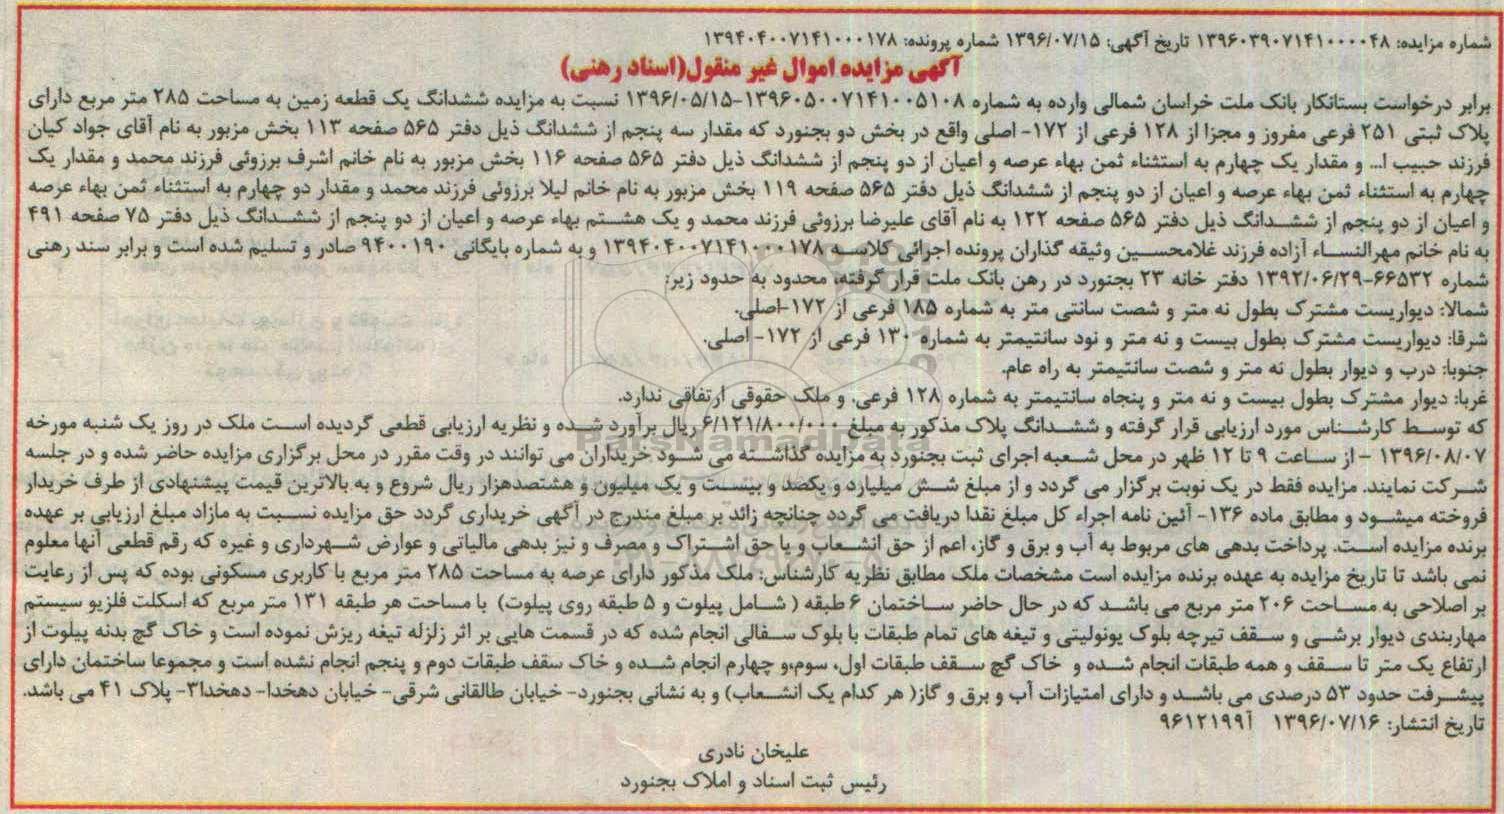 شماره مزایده: ۱۳۹۶۰۳۹۰۷۱۴۱۰۰۰۰۴۸ تاریخ آگهی: ۱۳۹۶/۰۷/۱۵ شماره پرونده: ۱۳۹۴۰۴۰۰۷۱۴۱۰۰۰۱۷۸
آگهی مزایده اموال غیر منقول(اسناد رهنی)
برابر درخواست بستانکار بانک ملت خراسان شمالی وارده به شماره ۱۳۹۶۰۵۰۰۷۱۴۱۰۰۵۱۰۸-۱۳۹۶/۰۵/۱۵ نسبت به مزایده ششدانگ یک قطعه زمین به مساحت ۲۸۵ متر مربع دارای
پلاک ثبتی ۲۵۱ فرعی مفروز و مجزا از ۱۲۸ فرعی از ۱۷۲- اصلی واقع در بخش دو بجنورد که مقدار سه پنجم از ششدانگ ذیل دفتر ۵۶۵ صفحه ۱۱۳ بخش مزبور به نام آقای جواد کیان
فرزند حبیب ا... و مقدار یک چهارم به استثناء ثمن بهاء عرصه و اعیان از دو پنجم از ششدانگ ذیل دفتر ۵۶۵ صفحه ۱۱۶ بخش مزبور به نام خانم اشرف برزوئی فرزند محمد و مقدار یک
چهارم به استثناء ثمن بهاء عرصه و اعیان از دو پنجم از ششدانگ ذیل دفتر ۵۶۵ صفحه ۱۱۹ بخش مزبور به نام خانم لیلا برزوئی فرزند محمد و مقدار دو چهارم به استثناء ثمن بهاء عرصه
و اعیان از دو پنجم از ششدانگ ذیل دفتر ۵۶۵ صفحه ۱۲۲ به نام آقای علیرضا برزوئی فرزند محمد و یک هشتم بهاء عرصه و اعیان از دو پنجم از ششدانگ ذیل دفتر ۷۵ صفحه ۴۹۱
به نام خانم مهرالنساء آزاده فرزند غلامحسین وثیقه گذاران پرونده اجرائی کلاسه ۱۳۹۴۰۴۰۰۷۱۴۱۰۰۰۱۷۸ و به شماره بایگانی ۹۴۰۰۱۹۰ صادر و تسلیم شده است و برابر سند رهنی
شماره ۶۶۵۳۲-۱۳۹۲/۰۶/۲۹ دفتر خانه ۲۳ بجنورد در رهن بانک ملت قرار گرفته، محدود به حدود زیر:
شمالا: دیواریست مشترک بطول نه متر و شصت سانتی متر به شماره ۱۸۵ فرعی از ۱۷۲-اصلی.
شرقا: دیواریست مشترک بطول بیست و نه متر و نود سانتیمتر به شماره ۱۳۰ فرعی از ۱۷۲- اصلی.
جنوبا: درب و دیوار بطول نه متر و شصت سانتیمتر به راه عام.
غربا: دیوار مشترک بطول بیست و نه متر و پنجاه سانتیمتر به شماره ۱۲۸ فرعی. و ملک حقوقی ارتفاقی ندارد.
که توسط کارشناس مورد ارزیابی قرار گرفته و ششدانگ پلاک مذکور به مبلغ ۶/۱۲۱/۸۰۰/۰۰۰ ریال برآورد شده و نظریه ارزیابی قطعی گردیده است ملک در روز یک شنبه مورخه
۱۳۹۶/۰۸/۰۷ - از ساعت ۹ تا ۱۲ ظهر در محل شعبه اجرای ثبت بجنورد به مزایده گذاشته می شود خریداران می توانند در وقت مقرر در محل برگزاری مزایده حاضر شده و در جلسه
شرکت نمایند. مزایده فقط در یک نوبت برگزار می گردد و از مبلغ شش میلیارد و یکصد و بیست و یک میلیون و هشتصدهزار ریال شروع و به بالاترین قیمت پیشنهادی از طرف خریدار
فروخته میشود و مطابق ماده ۱۳۶- آئین نامه اجراء کل مبلغ نقدا دریافت می گردد چنانچه زائد بر مبلغ مندرج در آگهی خریداری گردد حق مزایده نسبت به مازاد مبلغ ارزیابی بر عهده
برنده مزایده است. پرداخت بدهی های مربوط به آب و برق و گاز، اعم از حق انشعاب و یا حق اشتراک و مصرف و نیز بدهی مالیاتی و عوارض شهرداری و غیره که رقم قطعی آنها معلوم
نمی باشد تا تاریخ مزایده به عهده برنده مزایده است مشخصات ملک مطابق نظریه کارشناس: ملک مذکور دارای عرصه به مساحت ۲۸۵ متر مربع با کاربری مسکونی بوده که پس از رعایت
بر اصلاحی به مساحت ۲۰۶ متر مربع می باشد که در حال حاضر ساختمان ۶ طبقه ( شامل پیلوت و ۵ طبقه روی پیلوت) با مساحت هر طبقه ۱۳۱ متر مربع که اسکلت فلزیو سیستم
مهاربندی دیوار برشی و سقف تیرچه بلوک یونولیتی و تیغه های تمام طبقات با بلوک سفالی انجام شده که در قسمت هایی بر اثر زلزله تیغه ریزش نموده است و خاک گچ بدنه پیلوت از
ارتفاع یک متر تا سقف و همه طبقات انجام شده و خاک گچ سقف طبقات اول، سوم،و چهارم انجام شده و خاک سقف طبقات دوم و پنجم انجام نشده است و مجموعا ساختمان دارای
پیشرفت حدود ۵۳ درصدی می باشد و دارای امتیازات آب و برق و گاز( هر کدام یک انشعاب) و به نشانی بجنورد- خیابان طالقانی شرقی- خیابان دهخدا- دهخدا۳- پلاک ۴۱ می باشد.
تاریخ انتشار: ۱۳۹۶/۰۷/۱۶ آ۹۶۱۲۱۹۹
علیخان نادری
رئیس ثبت اسناد و املاک بجنورد
ParsNamadData